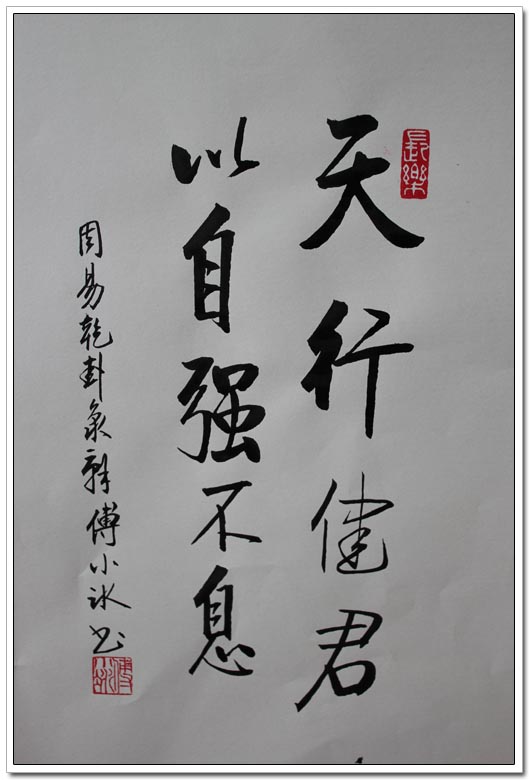 長樂
天行健君
以自强不息
周易乾卦象辞傅小冰书